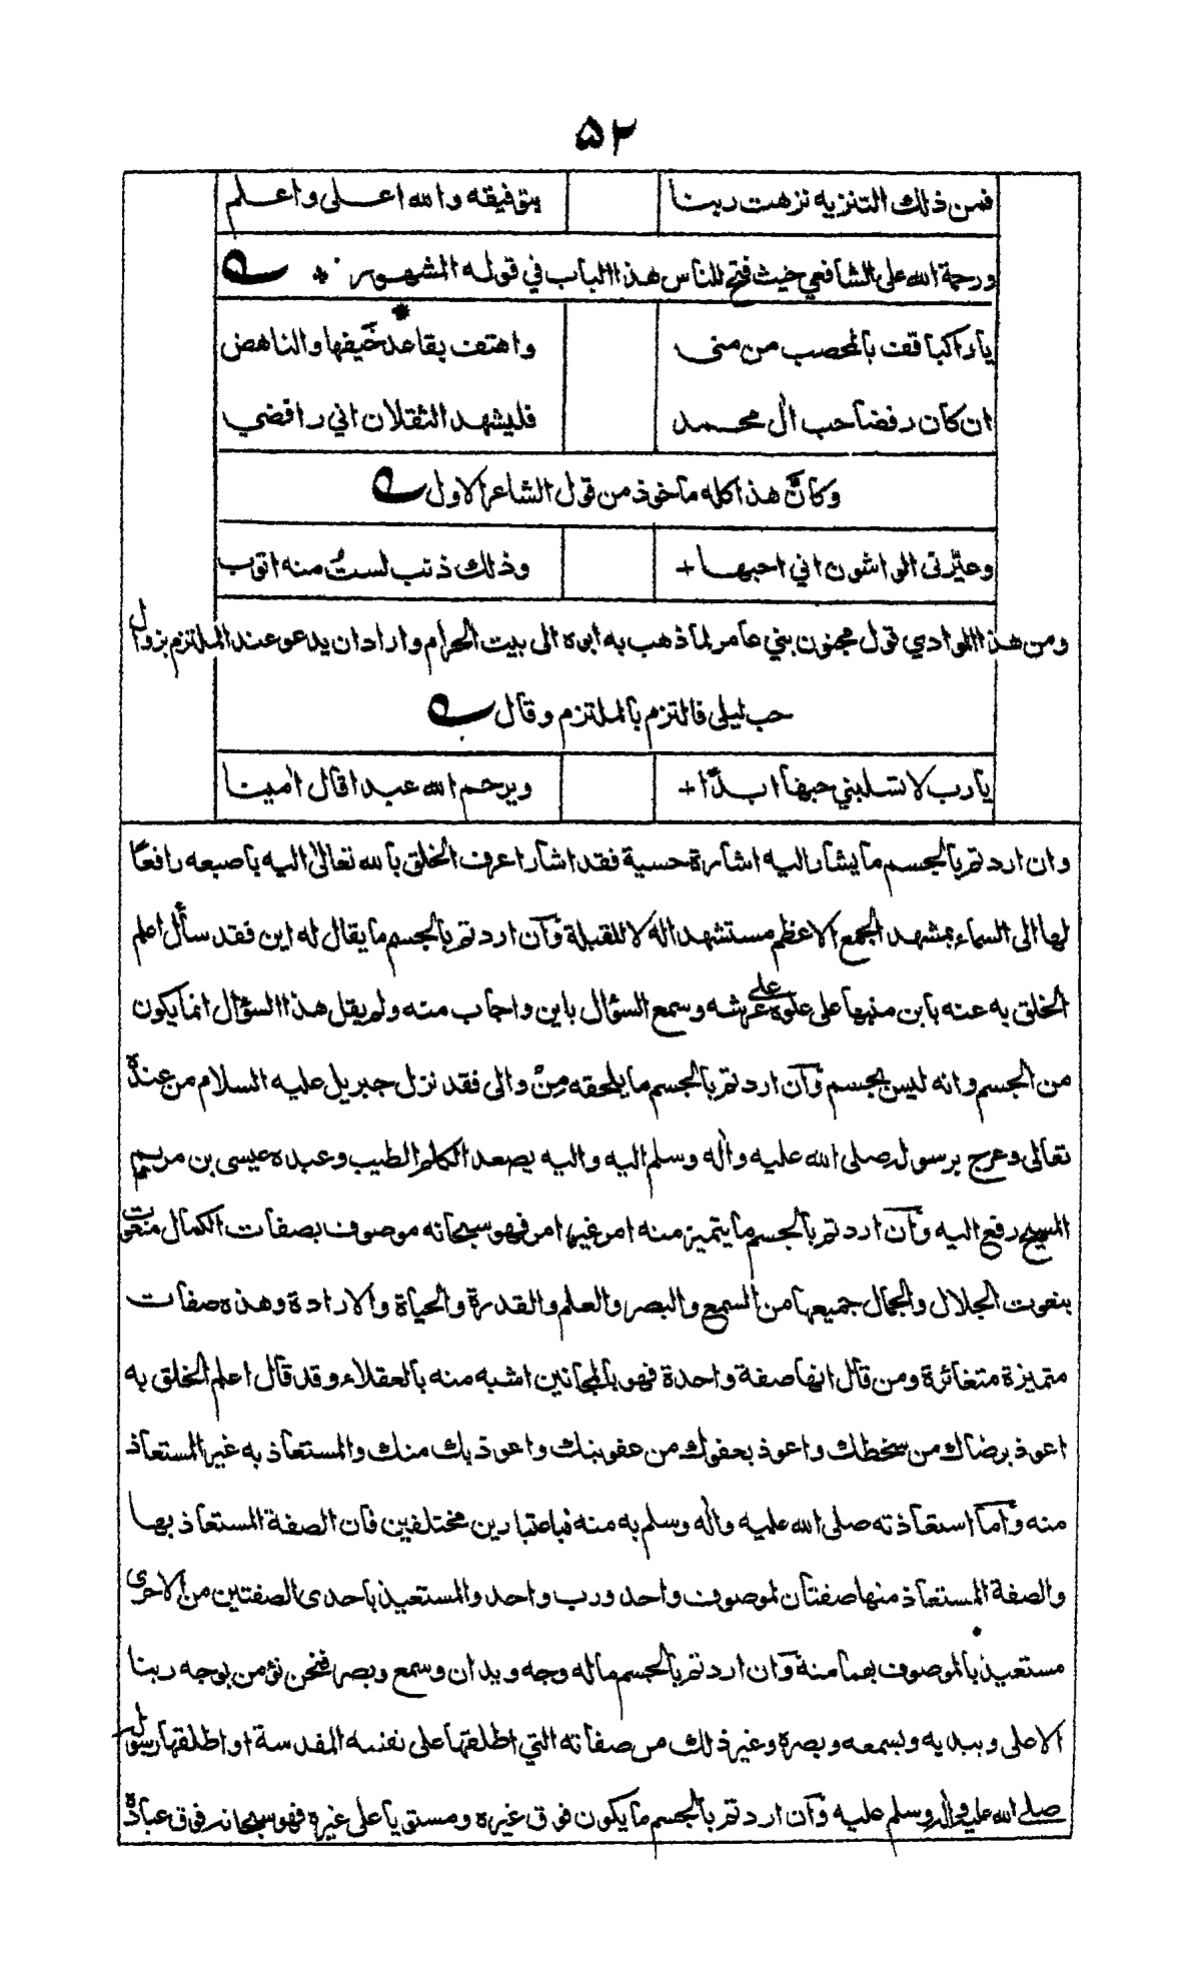 ۵۲
فمن ذلك التنزيه نزهت ربنا بتوفيقه والله اعلى واعلم
ورحمة الله على الشافعي حيث فتح للناس هذا الباب في قوله المشهور
ياراكبا قف بالمحصب من منى واهتف بقاعد خَيفها والناهض
ان كان رفضا حب اٰل محمد فليشهد الثقلان اني رافضي
وكانَّ هذا كله ماخوذ من قول الشاعر الاول
وعيَّرنى الواشون اني احبها + وذلك ذنب لستُ منه اتوب
ومن هذا الوادي قول مجنون بني عامر لما ذهب به ابوه الى بيت الحرام واراد ان يدعو عند الملتزم بزوال
حب ليلى فالتزم بالملتزم وقال
يارب لا تسلبني حبها ابدًا + ويرحم الله عبدا قال اٰمينا
وان اردتم بالجسم ما يشار اليه اشارة حسية فقد اشار اعرف الخلق بالله تعالىٰ اليه باصبعه رافعًا
لها الى السماء بمشهد الجمع الاعظم مستشهدا له لا للقبلة وآن اردتم بالجسم ما يقال له اين فقد سأل اعلم
الخلق به عنه باين منبها على علوه على عرشه وسمع السؤال باين واجاب منه ولم يقل هذا السؤال انما يكون
من الجسم وانه ليس بجسم وآن اردتم بالجسم ما يلحقه مِنْ والى فقد نزل جبريل عليه السلام من عنده
تعالى وعرج برسوله صلى الله عليه واٰله وسلم اليه واليه يصعد الكلم الطيب وعبده عيسى بن مريم
المسيح رفع اليه وآن اردتم بالجسم ما يتميز منه امر غير امر فهو سبحانه موصوف بصفات الكمال منعوت
بنعوت الجلال والجمال جميعها من السمع والبصر والعلم والقدرة والحياة والارادة وهذه صفات
متميزة متغائرة ومن قال انها صفة واحدة فهو بالمجانين اشبه منه بالعقلاء وقد قال اعلم الخلق به
اعوذ برضاك من سخطك واعوذ بعفوك من عقوبتك واعوذ بك منك والمستعاذ به غير المستعاذ
منه وآما استعاذته صلى الله عليه واٰله وسلم به منه فباعتبارين مختلفين فان الصفة المستعاذ بها
والصفة المستعاذ منها صفتان لموصوف واحد ورب واحد والمستعيذ باحدى الصفتين من الاخرى
مستعيذ بالموصوف بهما منه وآن اردتم بالجسم ماله وجه ويدان وسمع وبصر فنحن نؤمن بوجه ربنا
الاعلى وبيديه وبسمعه وبصره وغير ذلك من صفاته التي اطلقها على نفسه المقدسة او اطلقها رسول
صلى الله عليه واٰله وسلم عليه وآن اردتم بالجسم ما يكون فوق غيره ومستويا على غيره فهو سبحانه فوق عباده